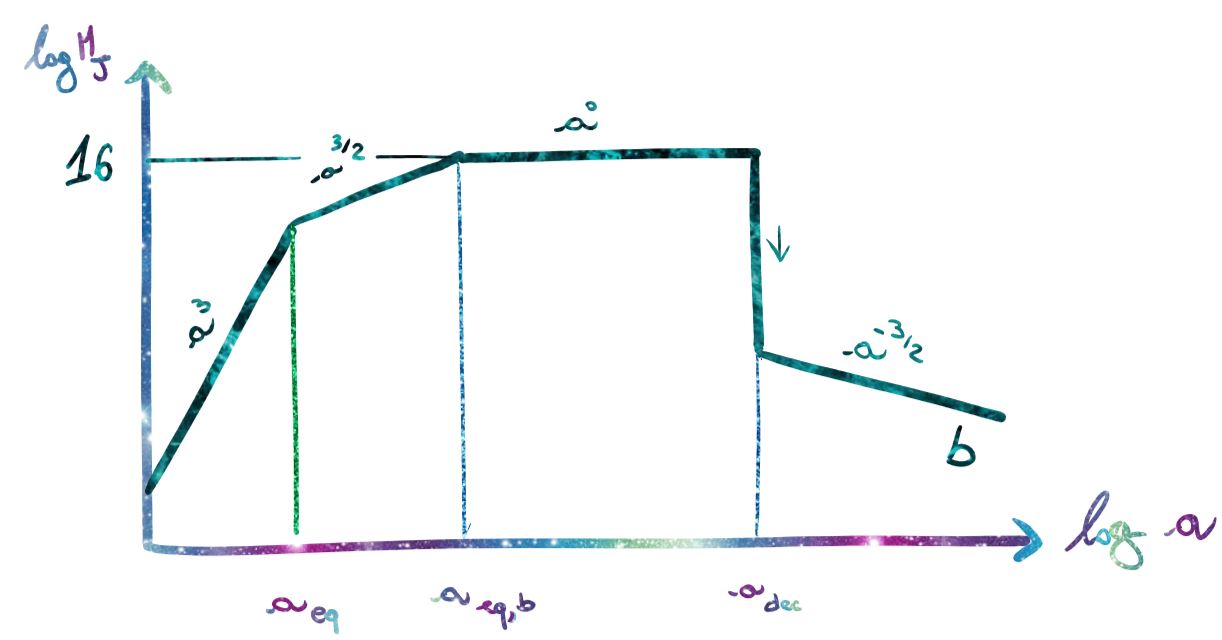 log M_J
16
a^3
a^{3/2}
a^0
a^{-3/2}
b
log a
a_{eq}
a_{eq,b}
a_{dec}